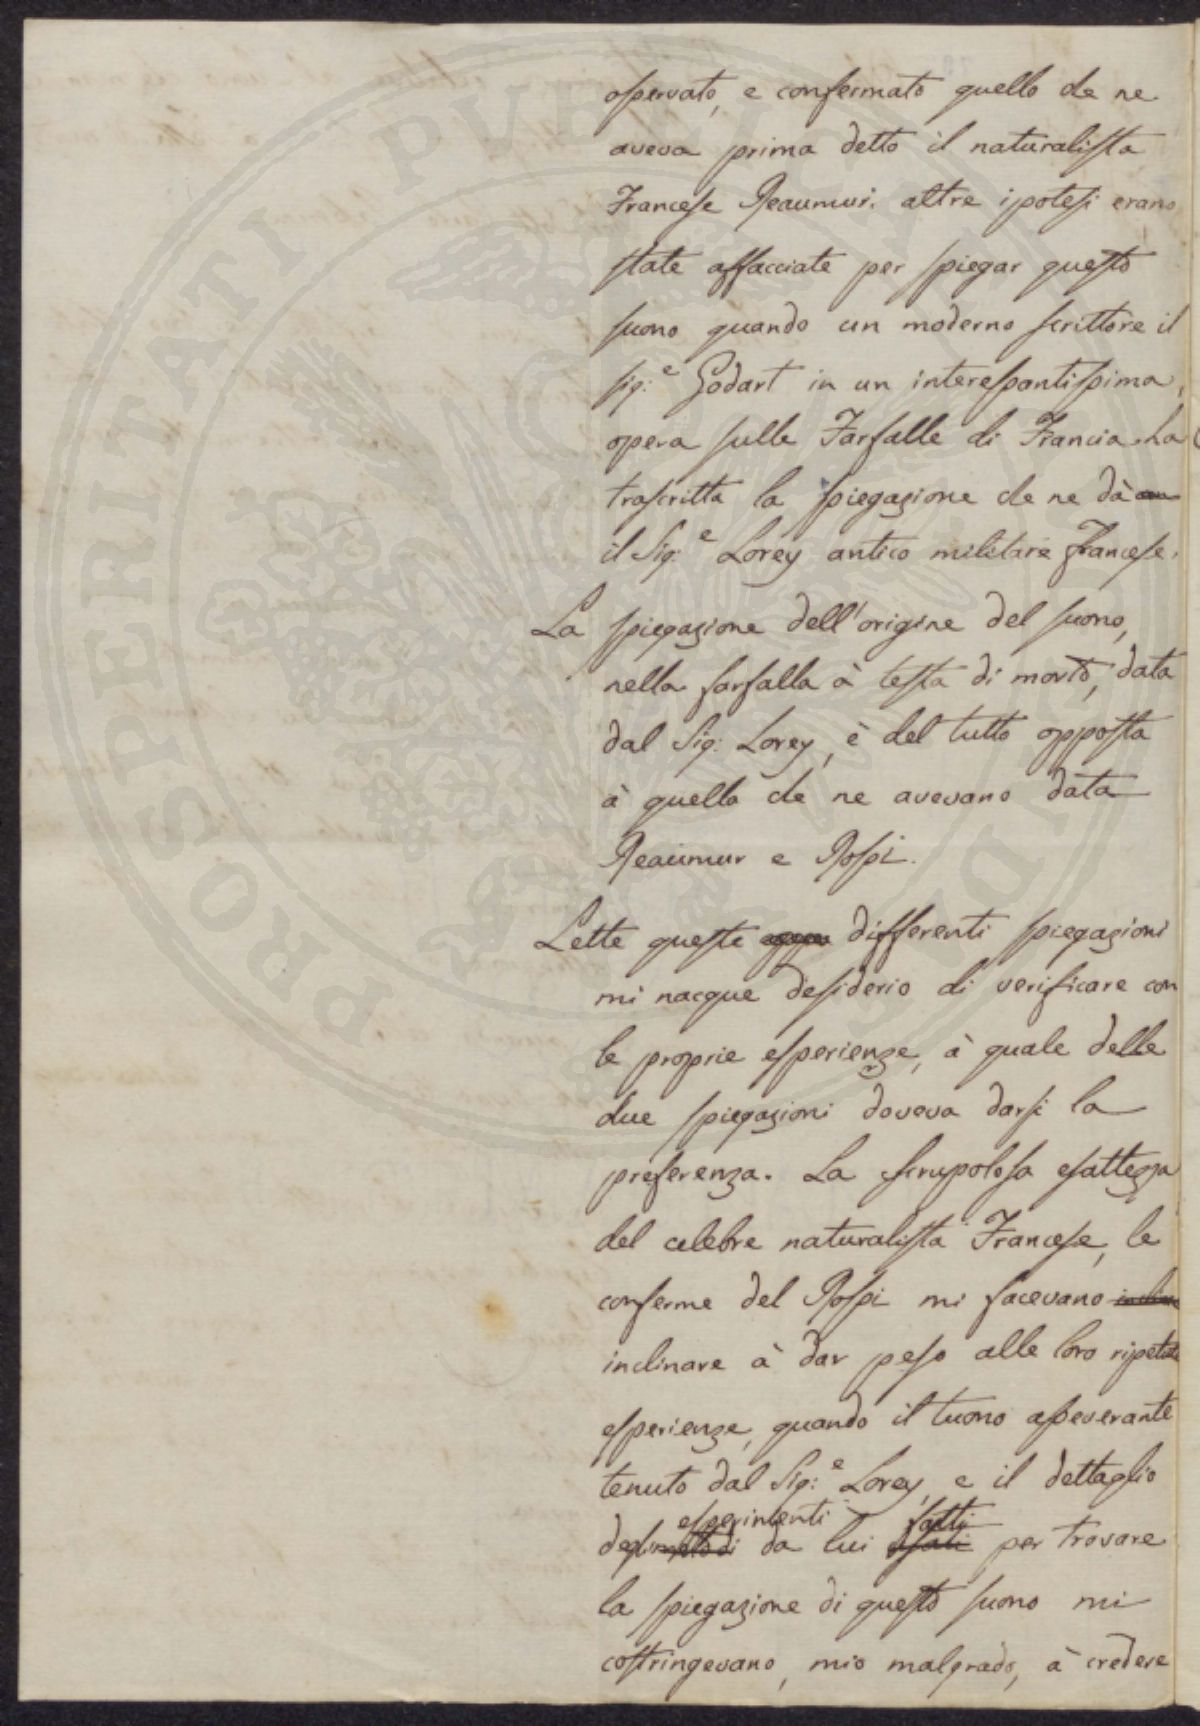 osservato, e confermato quello che ne
aveva prima detto il naturalista
Francese Reaumur. altre ipotesi erano
state affacciate per spiegar questo
suono quando un moderno scrittore il
sig:e Godart in un interessantissima
opera sulle Farfalle di Francia ha
trascritta la spiegazione che ne dà
il Sig:e Lorey antico militare francese.
La spiegazione dell'origine del suono,
nella farfalla à testa di morto, data
dal Sig: Lorey, è del tutto opposta
à quella che ne avevano data
Reaumur e Rossi.
Lette queste differenti spiegazioni
mi nacque desiderio di verificare con
le proprie esperienze, à quale delle
due spiegazioni doveva darsi la
preferenza. La scrupolosa esattezza
del celebre naturalista Francese, le
conferme del Rossi mi facevano
inclinare à dar peso alle loro ripetute
esperienze, quando il tuono asseverante
tenuto dal Sig:e Lorey, e il dettaglio
esperimenti fatti
degli metodi da lui usati per trovare
la spiegazione di questo suono mi
costringevano, mio malgrado, à credere
PROSPERITATI PVBLICAE